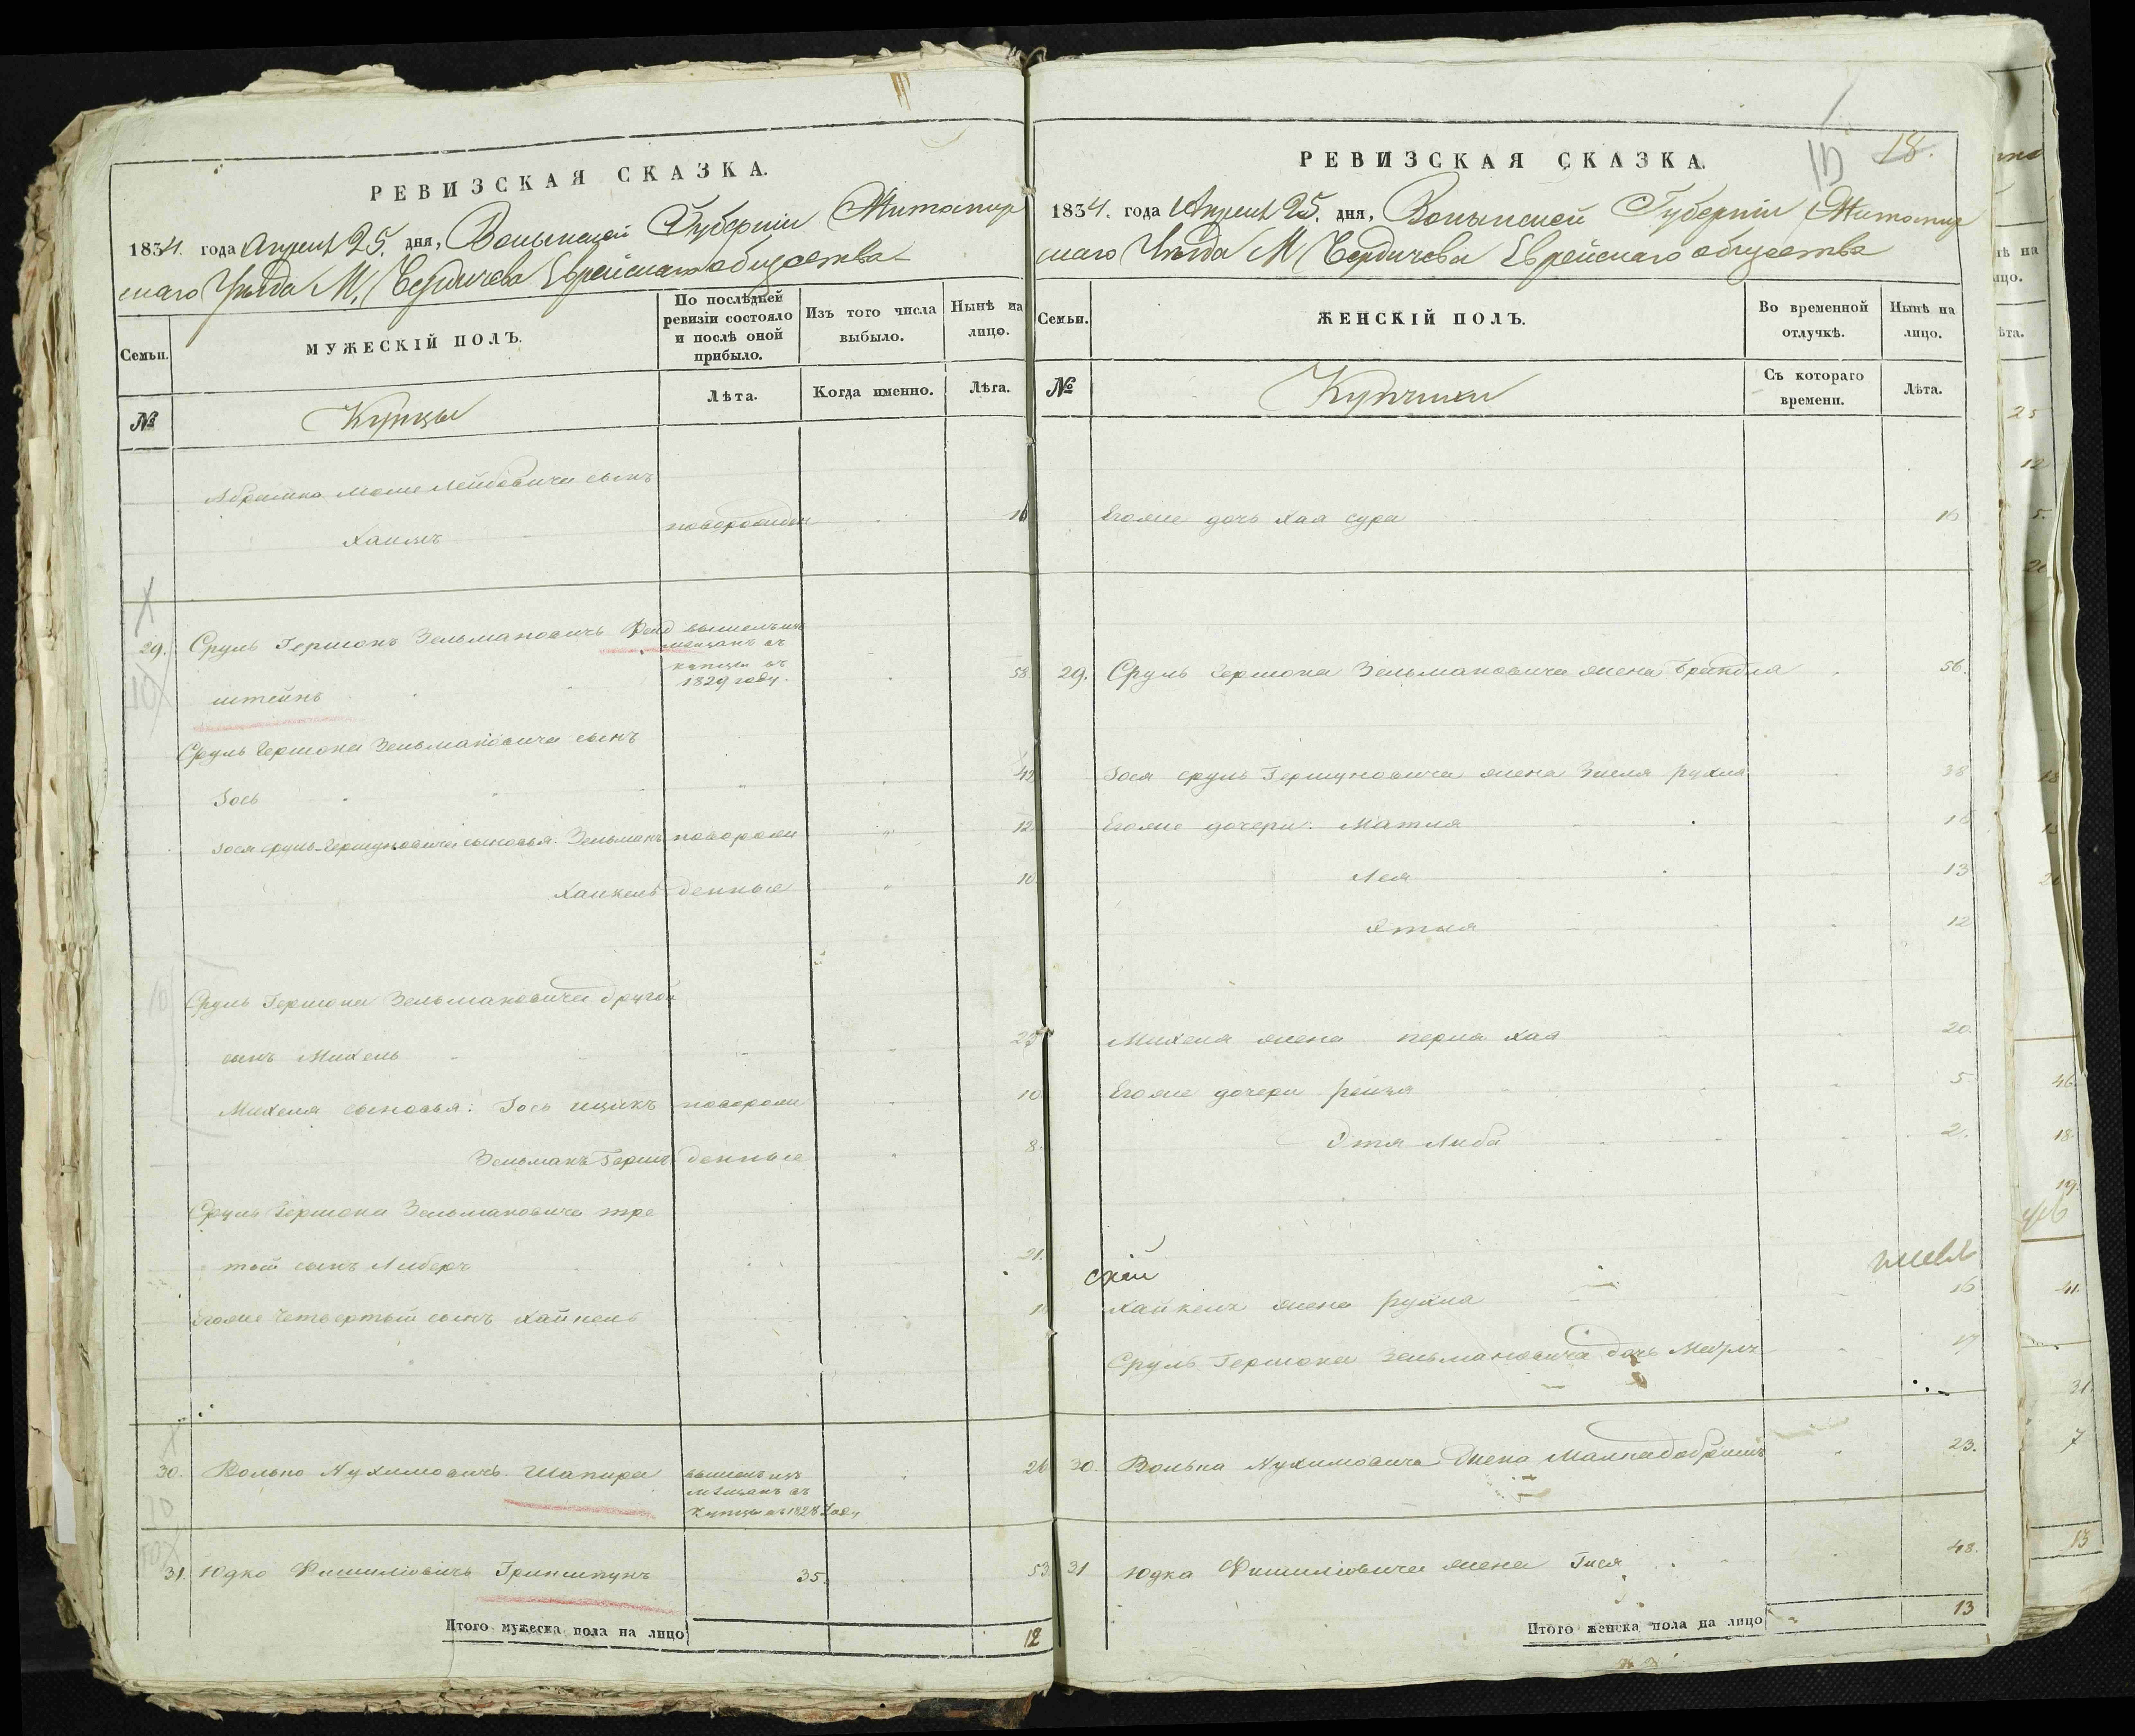 РЕВИЗСКАЯ СКАЗКА.
1834. года Апреля 25. дня, Волынской Губерніи Житомир
скаго Уѣзда М. Бердичева Еврейскаго общества
Семьи.
МУЖЕСКІЙ ПОЛЪ.
По послѣдней ревизіи состояло и послѣ оной прибыло.
Изъ того числа выбыло.
Нынѣ на лицо.
№
Купцы
Лѣта.
Когда именно.
Лѣта.
Абрамка Моше Лейбовича сынъ
Хаимъ новорожден
29. Сруль Гершонъ Зельмановичъ Фейн вышелъ изъ
мещанъ въ
купцы въ
1829 году.
штейнъ 58.
Сруль Гершона Зельмановича сынъ
Іось 42
Іося Сруль-Гершуновича сыновья: Зельманъ новорож 12
Хаикель денные 10.
Сруль Гершона Зельмановича другой
сынъ Михель
Михеля сыновья: Іось ицикъ новорож 10
Зельманъ Герш денные 8.
Сруль Гершона Зельмановича тре
тий сынъ Либеръ 21.
Егоже четвертый сынъ Хайкель
30. Волько Нухимовичъ Шапира вышелъ изъ 26
мещанъ въ
купцы въ 1828 году
31. Юдко Фишилиовичъ Гринштунъ 35. 53.
Итого мужеска пола на лицо 12
18.
РЕВИЗСКАЯ СКАЗКА.
1834. года Апреля 25. дня, Волынской Губерніи Житомир
скаго Уѣзда М Бердичева Еврейскаго общества
Семьи.
ЖЕНСКІЙ ПОЛЪ.
Во временной отлучкѣ.
Нынѣ на лицо.
№
Купчихи
Съ котораго времени.
Лѣта.
Егоже дочь Хая сура 16
29. Сруль Гершона Зельмановича жена Брандля 56.
Іося Сруль Гершуновича жена Зисля рухля 38
Егоже дочери: Матля 16
Лея 13
12
Михеля жена перла хая 20
Егоже дочери рейзя 5
Этя Либа 2.
Хайкеля жена рухля 16
Сруль Гершона Зельмановича дочь 17
30. Волька Нухимовича жена 23.
31 Юдка Фишилиовича жена Гися 48.
Итого женска пола на лицо 13